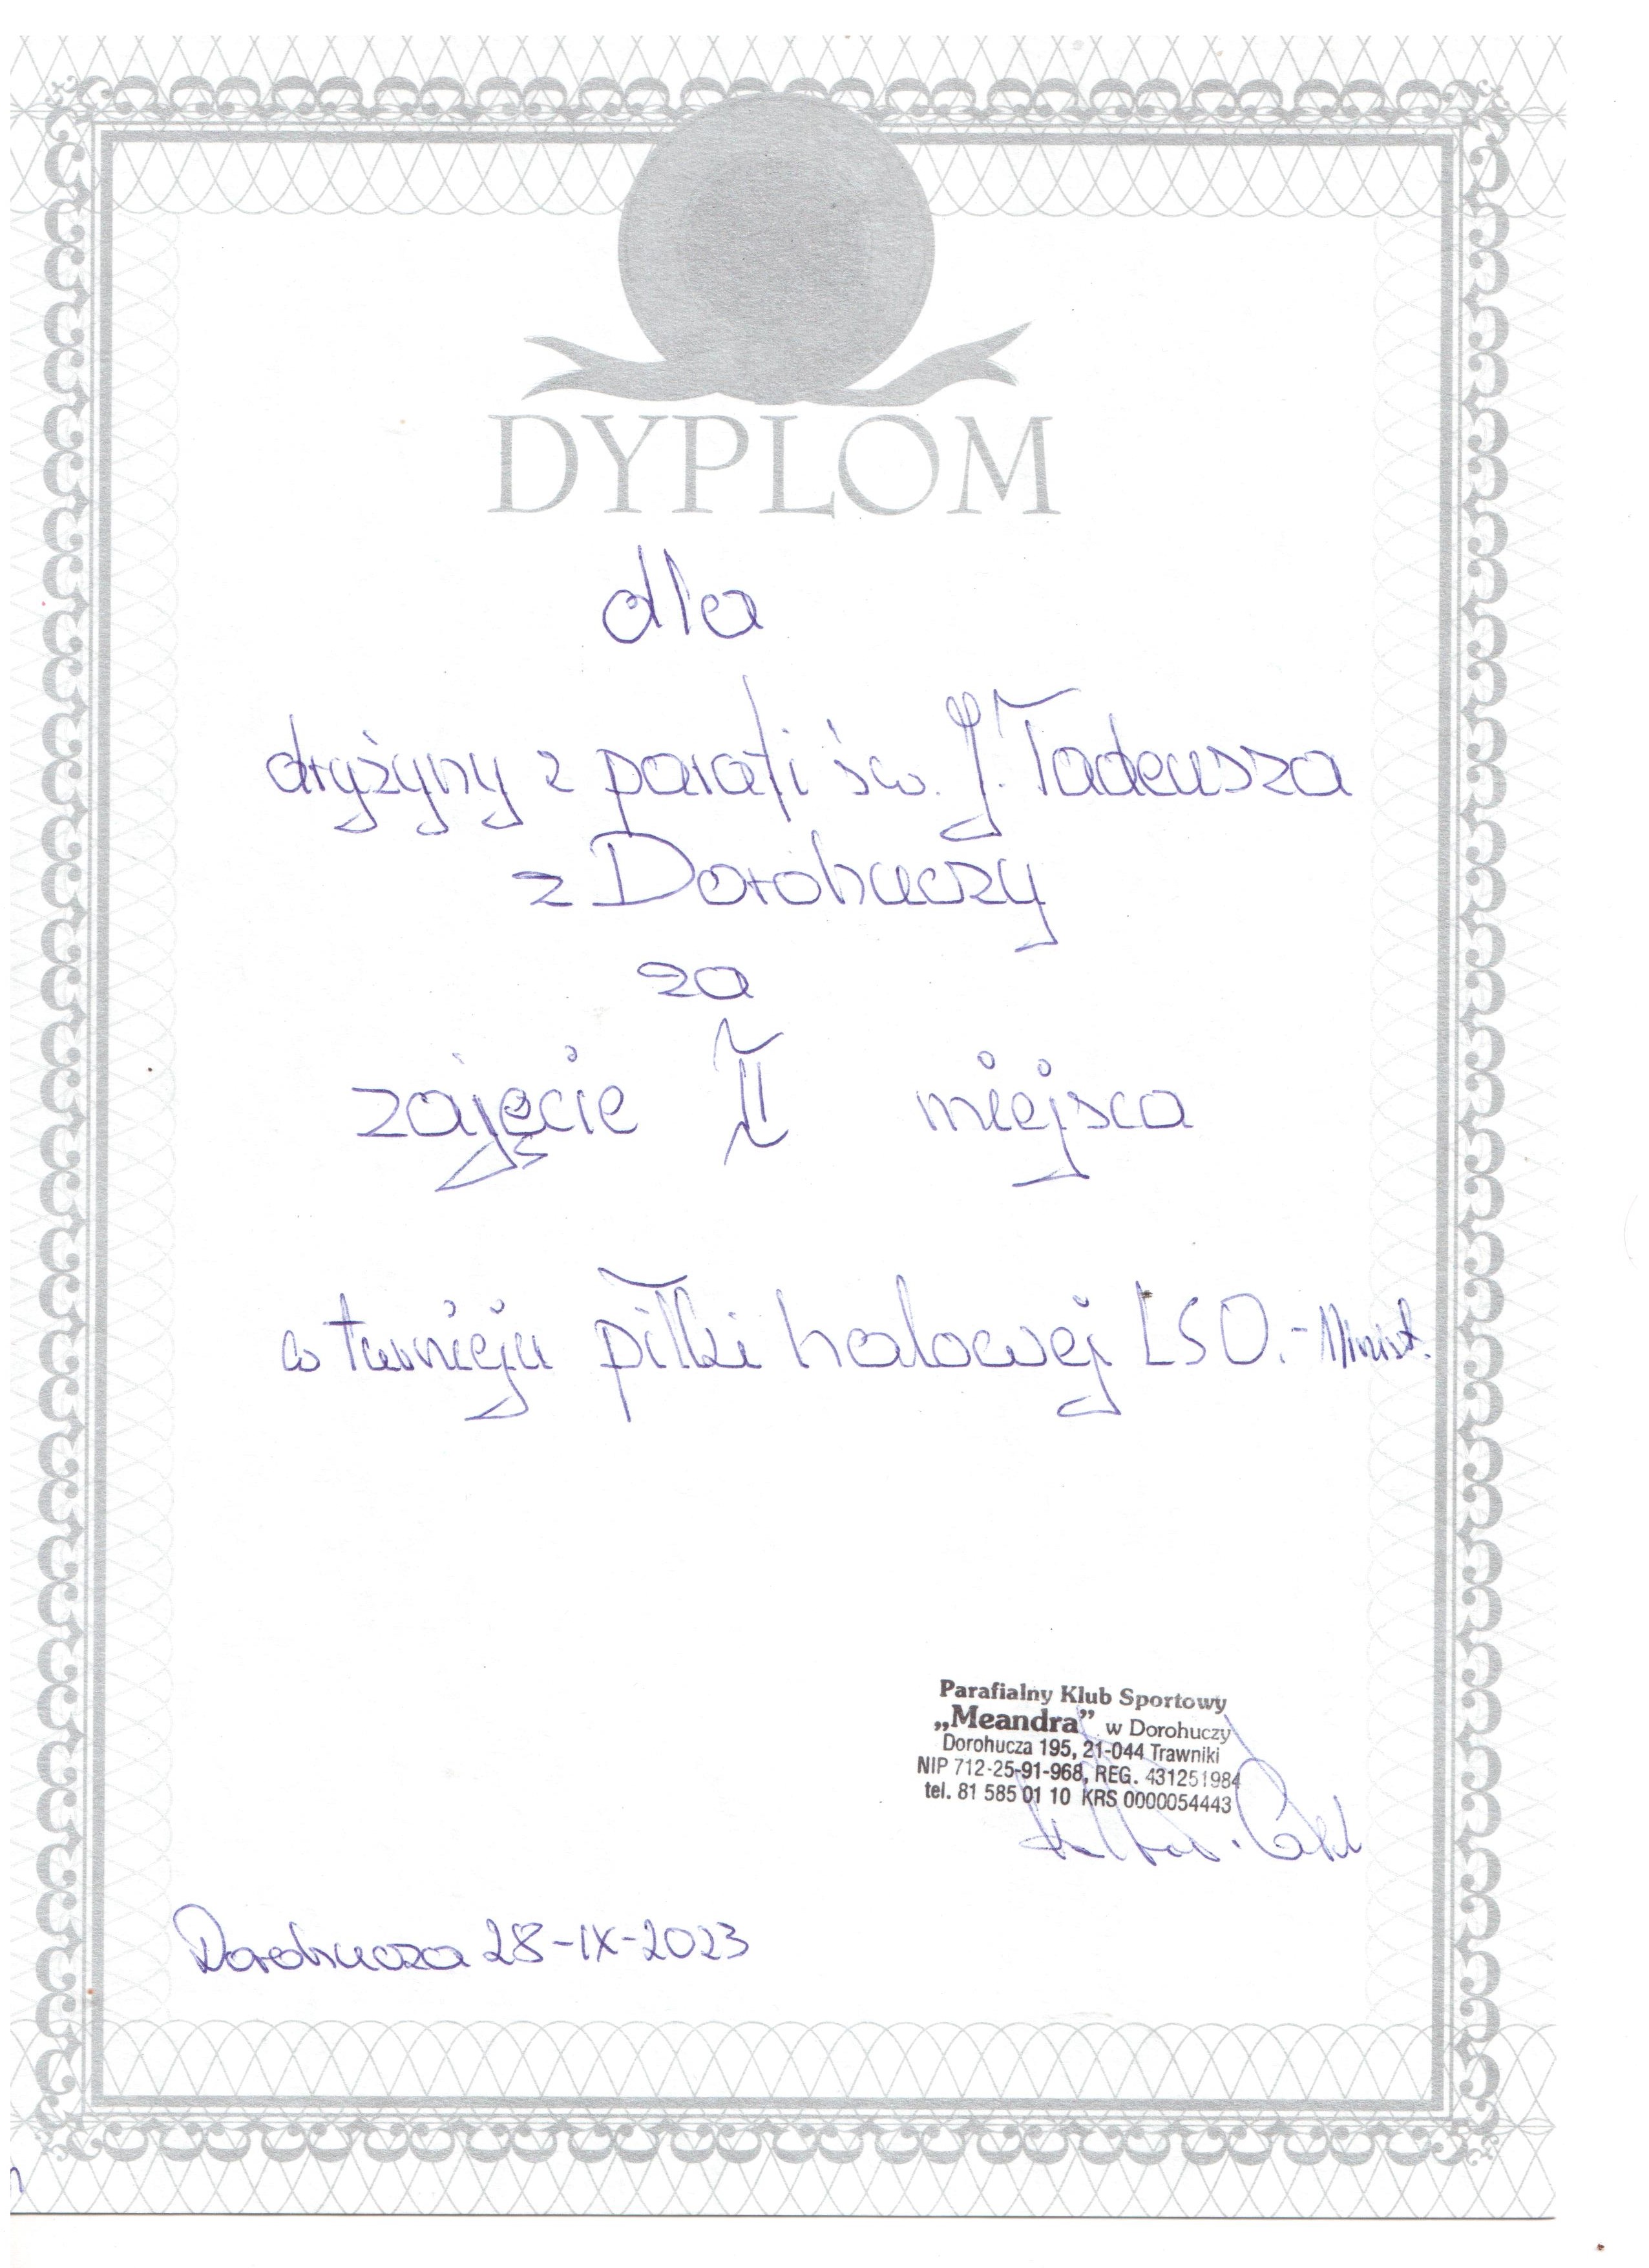 DYPLOM
dla
drużyny z parafi św. J. Tadeusza
z Dorohuczy
za
zajęcie II miejsca
w turnieju piłki halowej LSO.-Minist.
Parafialny Klub Sportowy
„Meandra” w Dorohuczy
Dorohucza 195, 21-044 Trawniki
NIP 712-25-91-968, REG. 431251984
tel. 81 585 01 10 KRS 0000054443
Dorohucza 28-IX-2023